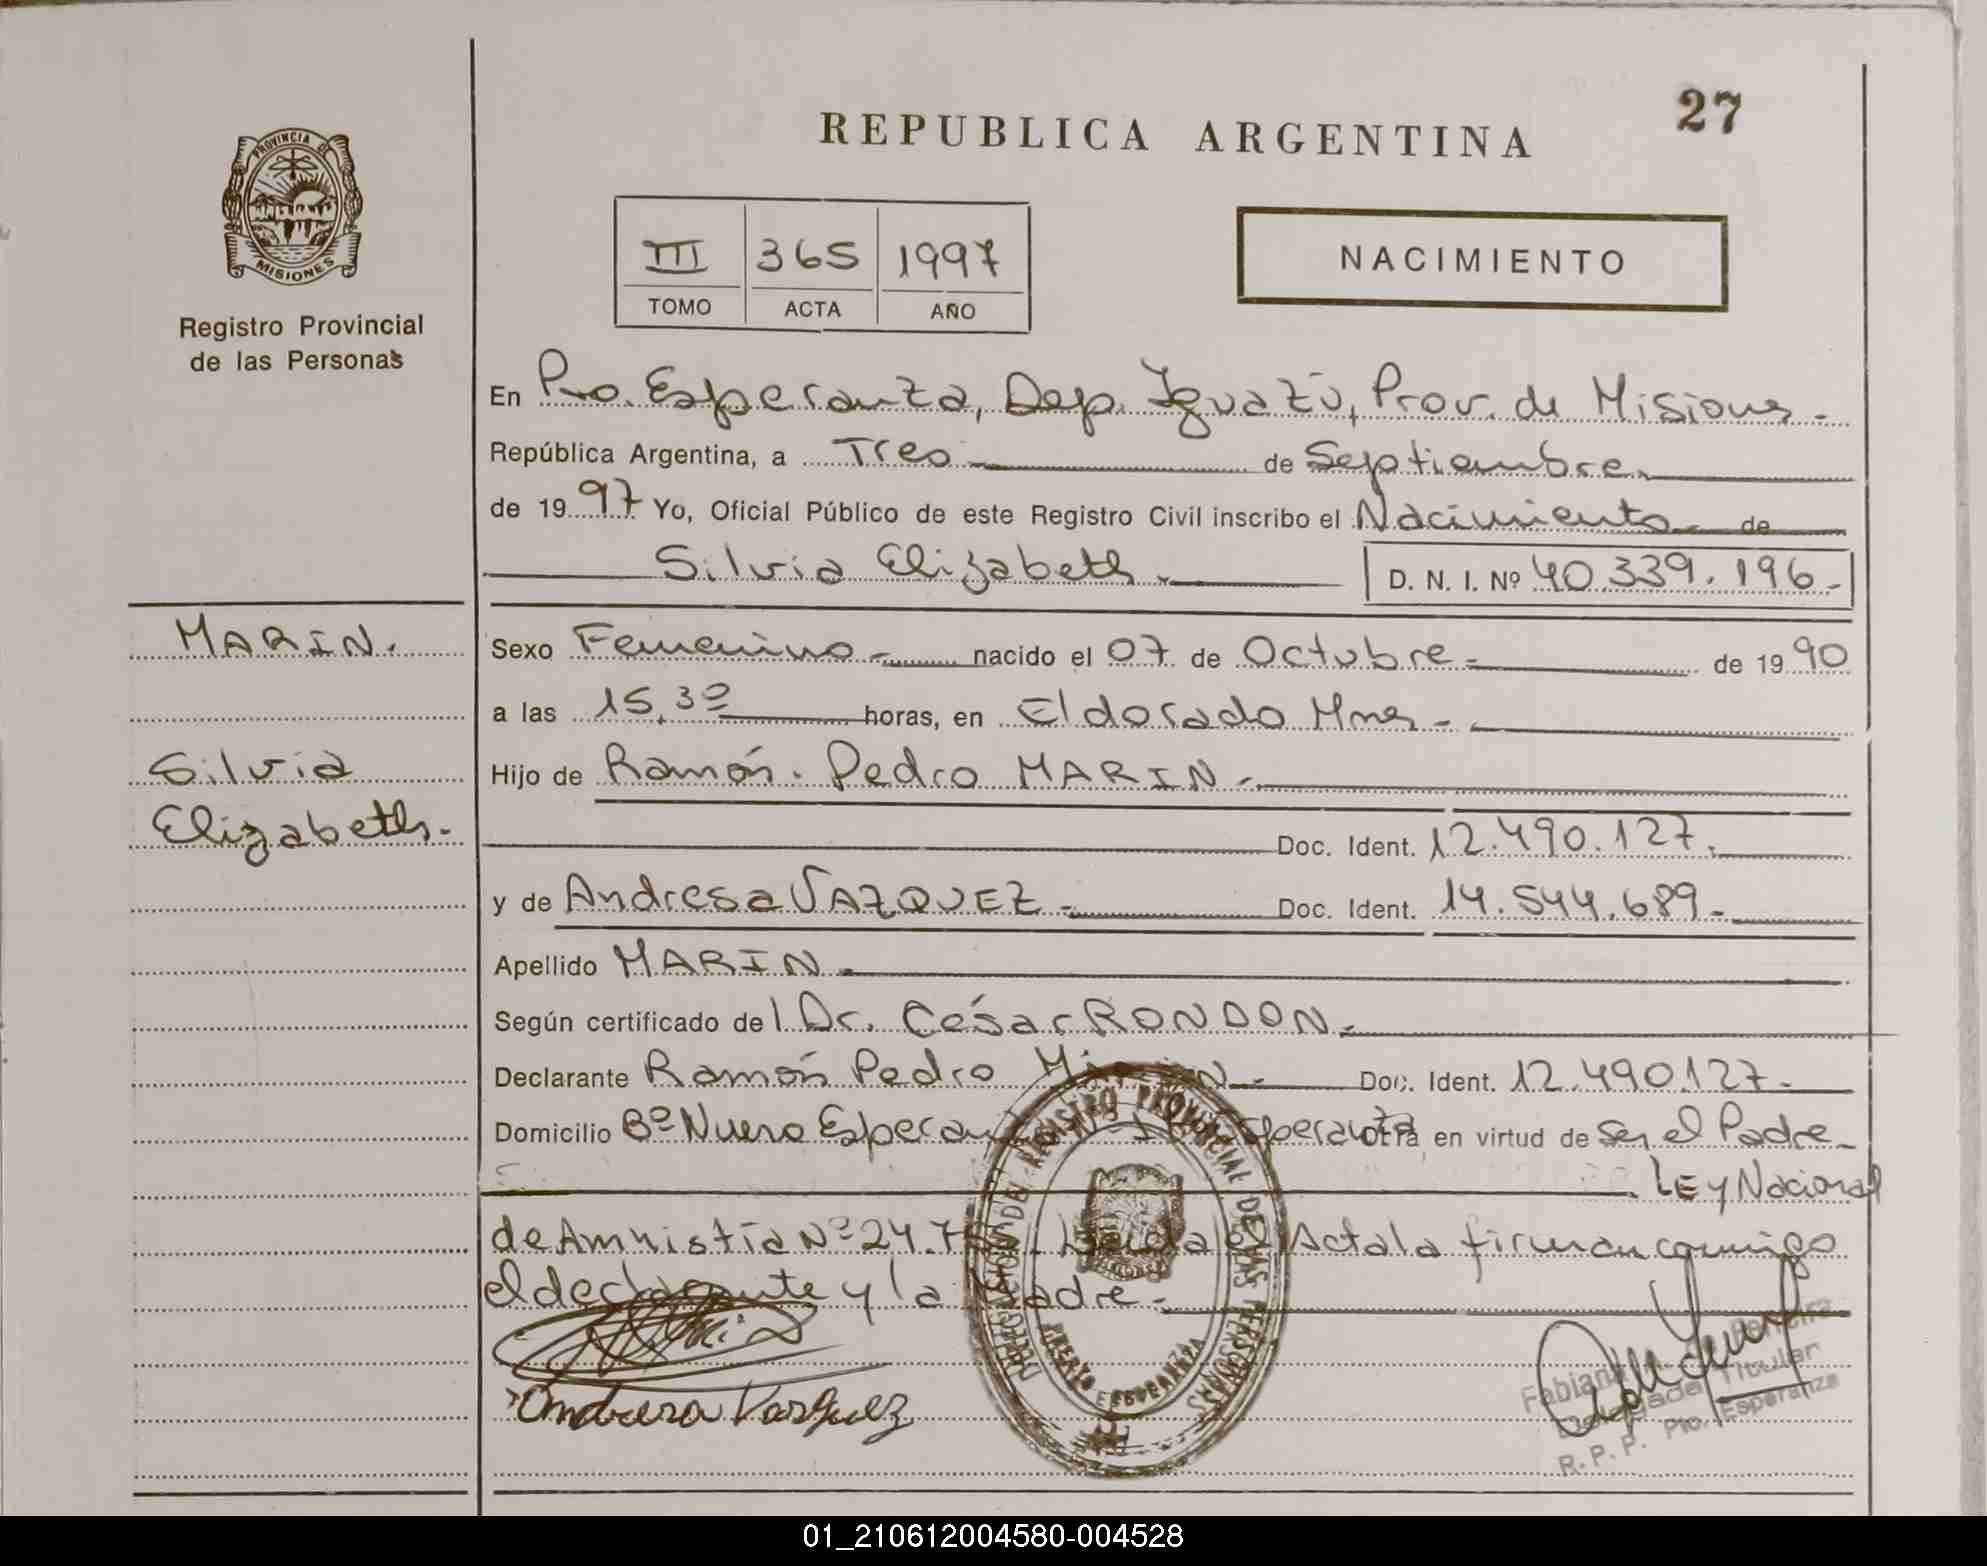 27
REPUBLICA ARGENTINA
PROVINCIA DE
MISIONES
Registro Provincial
de las Personas
III 365 1997
TOMO ACTA AÑO
NACIMIENTO
En Pto. Esperanza, Dep. Iguazú, Prov. de Misiones.-
República Argentina, a Tres de Septiembre.
de 1997 Yo, Oficial Público de este Registro Civil inscribo el Nacimiento de
Silvia Elizabeth. D. N. I. Nº 40.339.196.-
MARIN.
Silvia
Elizabeth.-
Sexo Femenino.- nacido el 07 de Octubre.- de 1990
a las 15,30 horas, en Eldorado Mnes.-
Hijo de Ramón. Pedro MARIN.-
Doc. Ident. 12.490.127.
y de Andresa VAZQUEZ.- Doc. Ident. 14.544.689.-
Apellido MARIN.
Según certificado del Dr. César RONDON.-
Declarante Ramón Pedro Doc. Ident. 12.490.127.-
Domicilio Bº Nuevo en virtud de Ser el Padre.-
LEy Nacional
de Amnistía Nº 24.7 Leida el Acta la firman conmigo
el declarante y la Madre.-
DIRECCION DEL REGISTRO PROVINCIAL DE LAS PERSONAS
PUERTO ESPERANZA
Vasquez
Fabiana Pereira
Delegada Titular
R. P. P. Pto. Esperanza
01_210612004580-004528